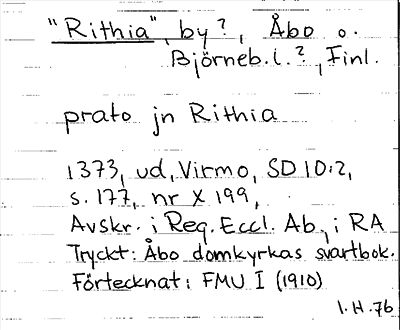 "Rithia", by?, Åbo o.
Björneb.l.?, Finl.
prato jn Rithia
1373, ud, Virmo, SD 10:2,
s. 177, nr X 199,
Avskr. i Reg. Eccl. Ab., i RA
Tryckt: Åbo domkyrkas svartbok.
Förtecknat: FMU I (1910)
I.H. 76